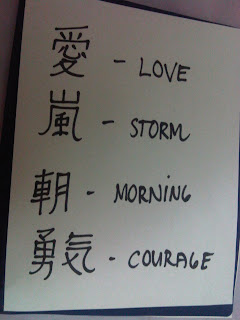 愛 - LOVE
嵐 - STORM
朝 - MORNING
勇気 - COURAGE